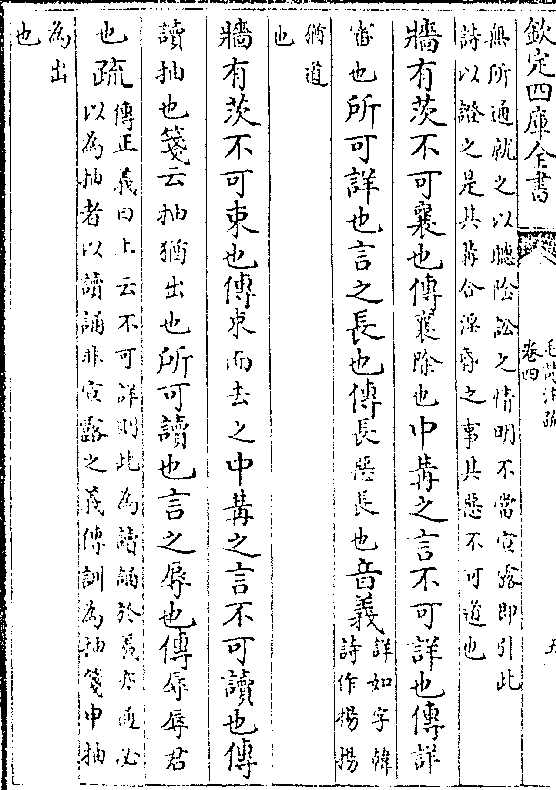 欽定四庫全書
毛詩注疏
卷四
五
無所通就之以聽陰訟之情明不當宣露即引此
詩以證之是其冓合淫昏之事其惡不可道也
牆有茨不可襄也傳襄除也中冓之言不可詳也傳詳
審也所可詳也言之長也傳長惡長也音義
詳如字韓
詩作揚揚
猶道
也
牆有茨不可束也傳束而去之中冓之言不可讀也傳
讀抽也箋云抽猶出也所可讀也言之辱也傳辱辱君
也疏
傳正義曰上云不可詳則此為讀誦於義亦通必
以為抽者以讀誦非宣露之義傳訓為抽箋申抽
為出
也